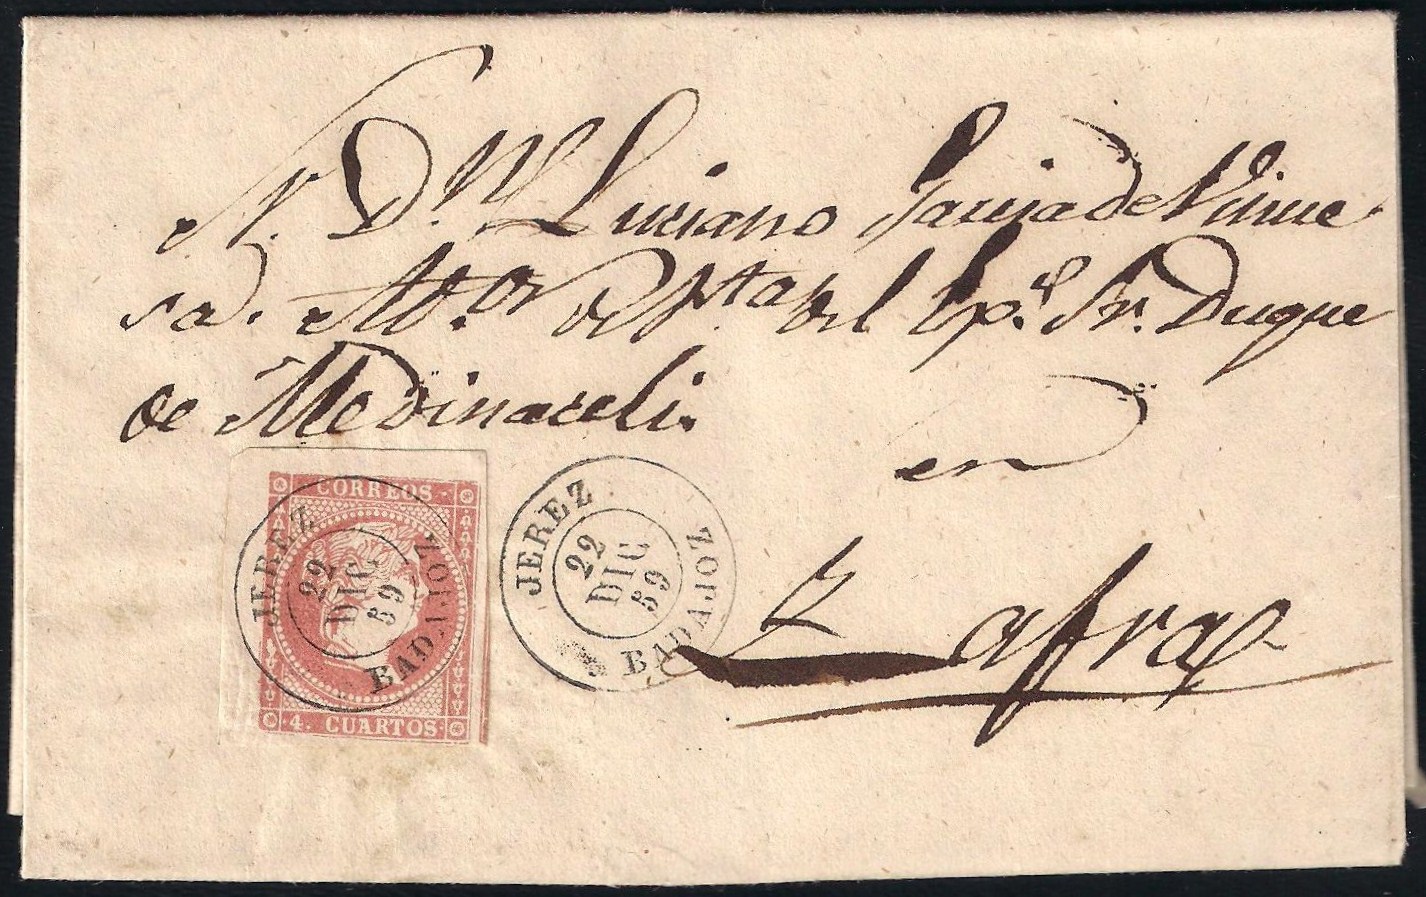 Sr. Dn. Luciano Garcia de Vinue
sa. Ad.or de Rentas del Exmo. Sr. Duque
de Medinaceli.
en
Zafra
CORREOS
4. CUARTOS
JEREZ
22
DIC
59
BADAJOZ
JEREZ
22
DIC
59
BADAJOZ